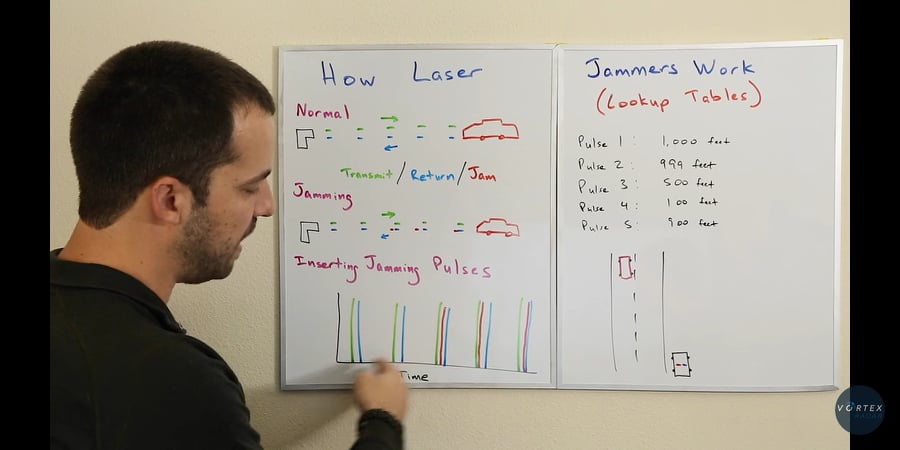 How Laser
Normal
Transmit/Return/Jam
Jamming
Inserting Jamming Pulses
Time
Jammers Work
(Lookup Tables)
Pulse 1: 1,000 feet
Pulse 2: 999 feet
Pulse 3: 500 feet
Pulse 4: 100 feet
Pulse 5: 900 feet
VORTEX
RADAR